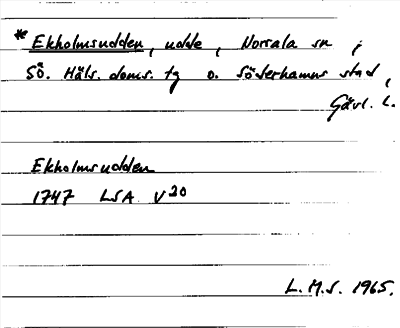 * Ekholmsudden, udde, Norrala sn i
Sö. Häls. doms. tg o. Söderhamns stad,
Gävl. L.
Ekholmsudden
1747 LSA V20
L.M.S. 1965.